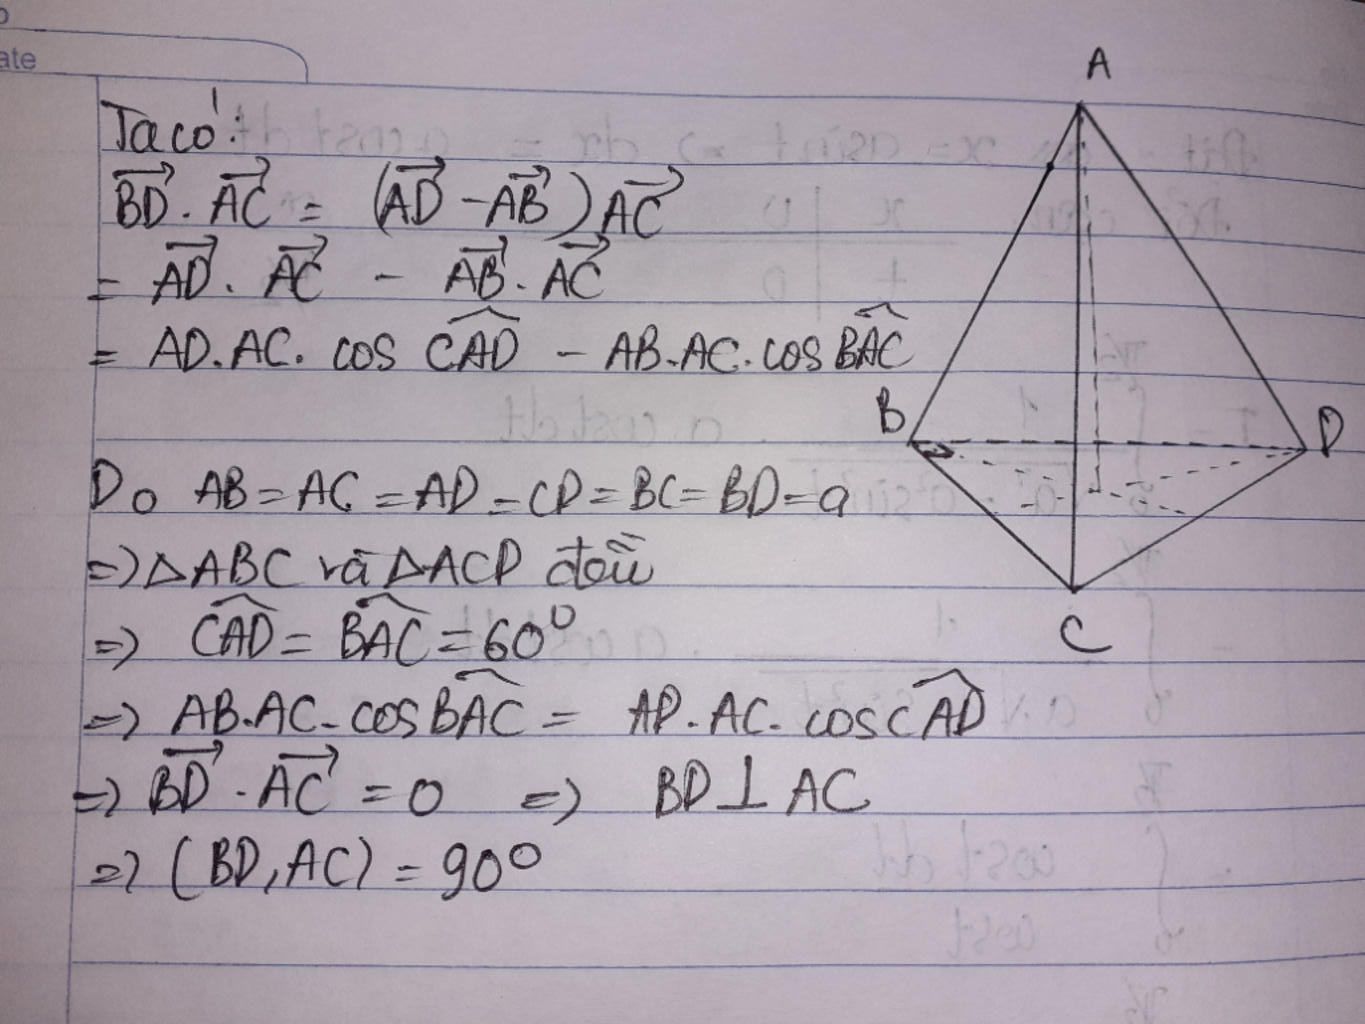 ate
Ta có:
$\overrightarrow{BD} . \overrightarrow{AC} = (\overrightarrow{AD} - \overrightarrow{AB}) \overrightarrow{AC}$
$= \overrightarrow{AD} . \overrightarrow{AC} - \overrightarrow{AB} . \overrightarrow{AC}$
$= AD.AC. \cos \widehat{CAD} - AB.AC. \cos \widehat{BAC}$
Do AB = AC = AD = CD = BC = BD = a
=> ΔABC và ΔACD đều
=> $\widehat{CAD} = \widehat{BAC} = 60^0$
=> $AB.AC. \cos \widehat{BAC} = AD.AC. \cos \widehat{CAD}$
=> $\overrightarrow{BD} . \overrightarrow{AC} = 0$ => BD ⊥ AC
=> (BD, AC) = 90⁰
A
B
D
C